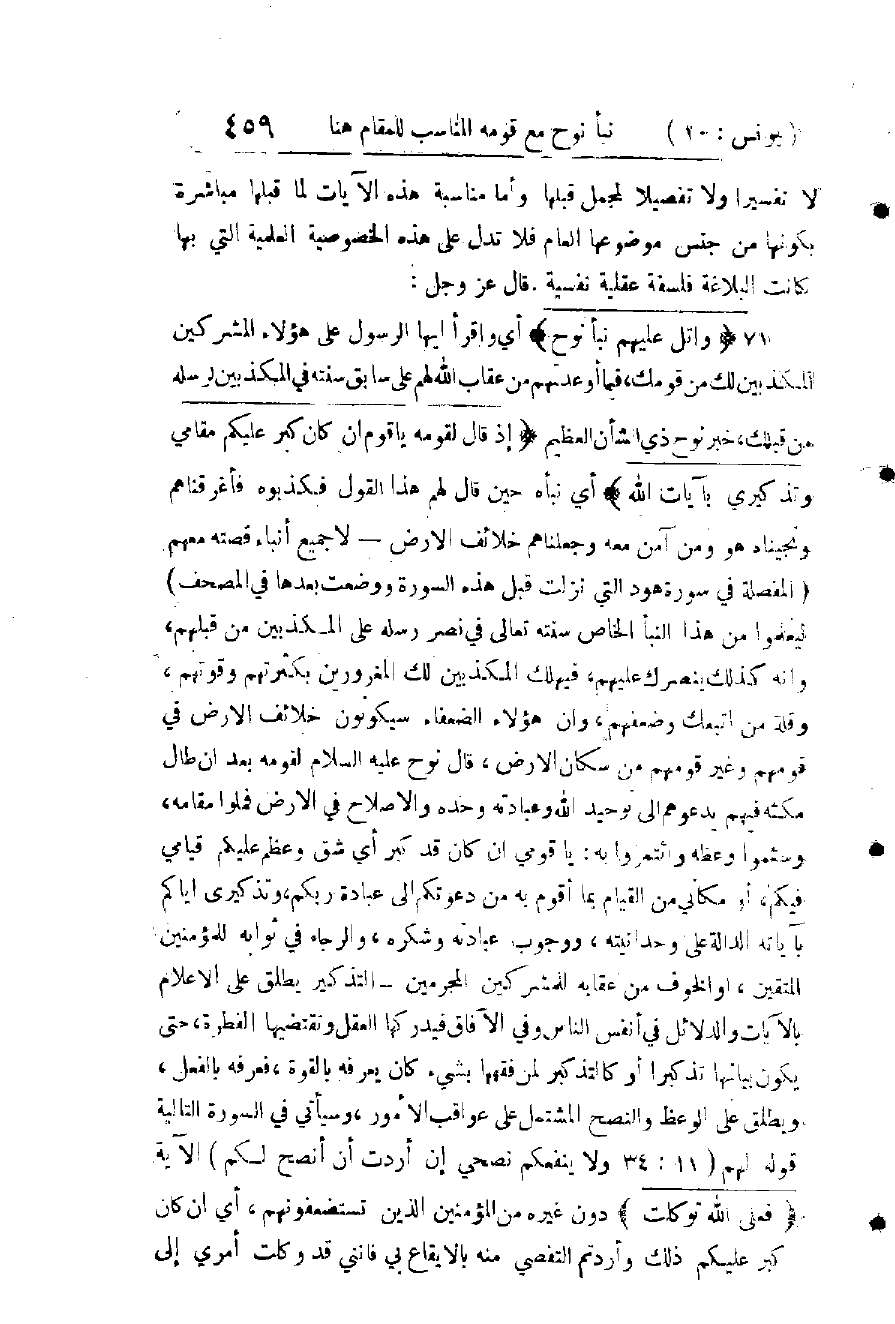 ( يونس : ١٠ ) نبأ نوح مع قومه المناسب للمقام هنا ٤٥٩
لا تفسيرا ولا تفصيلا لمجمل قبلها وأما مناسبة هذه الآيات لما قبلها مباشرة
بكونها من جنس موضوعها العام فلا تدل على هذه الخصوصية العلمية التي بها
كانت البلاغة فلسفة عقلية نفسية . قال عز وجل :
٧١ ﴿ واتل عليهم نبأ نوح ﴾ أي واقرأ ايها الرسول على هؤلاء المشركين
المكذبين لك من قومك، فيما أوعدتهم من عقاب الله لهم على سابق سنته في المكذبين لرسله
من قبلك، خبر نوح ذي الشأن العظيم ﴿ إذ قال لقومه ياقوم ان كان كبر عليكم مقامي
وتذكيري بآيات الله ﴾ أي نبأه حين قال لهم هذا القول فكذبوه فأغرقناهم
ونجيناه هو ومن آمن معه وجعلناهم خلائف الارض — لاجميع أنباء قصته معهم
( المفصلة في سورة هود التي نزلت قبل هذه السورة ووضعت بعدها في المصحف )
ليعلموا من هذا النبأ الخاص سنته تعالى في نصر رسله على المكذبين من قبلهم،
وانه كذلك ينصرك عليهم، فيهلك المكذبين لك المغرورين بكثرتهم وقوتهم ،
وقلة من اتبعك وضعفهم، وان هؤلاء الضعفاء سيكونون خلائف الارض في
قومهم وغير قومهم من سكان الارض ، قال نوح عليه السلام لقومه بعد ان طال
مكثه فيهم يدعوهم الى توحيد الله وعبادته وحده والاصلاح في الارض فملوا مقامه،
وسئموا وعظه وائتمروا به : يا قومي ان كان قد كبر أي شق وعظم عليكم قيامي
فيكم، أو مكاني من القيام بما أقوم به من دعوتكم الى عبادة ربكم، وتذكيرى اياكم
بآياته الدالة على وحدانيته ، ووجوب عبادته وشكره ، والرجاء في ثوابه للمؤمنين
المتقين ، او الخوف من عقابه للمشركين المجرمين – التذكير يطلق على الاعلام
بالآيات والدلائل في أنفس الناس وفي الآفاق فيدركها العقل وتقتضيها الفطرة، حتى
يكون بيانها تذكيرا أو كالتذكير لمن فقهها بشيء كان يعرفه بالقوة ، فعرفه بالفعل ،
ويطلق على الوعظ والنصح المشتمل على عواقب الأمور ، وسيأتي في السورة التالية
قوله لهم ( ١١ : ٣٤ ولا ينفعكم نصحي إن أردت أن أنصح لكم ) الآية
﴿ فعلى الله توكلت ﴾ دون غيره من المؤمنين الذين تستضعفونهم ، أي ان كان
كبر عليكم ذلك وأردتم التفصي منه بالايقاع بي فانني قد وكلت أمري إلى